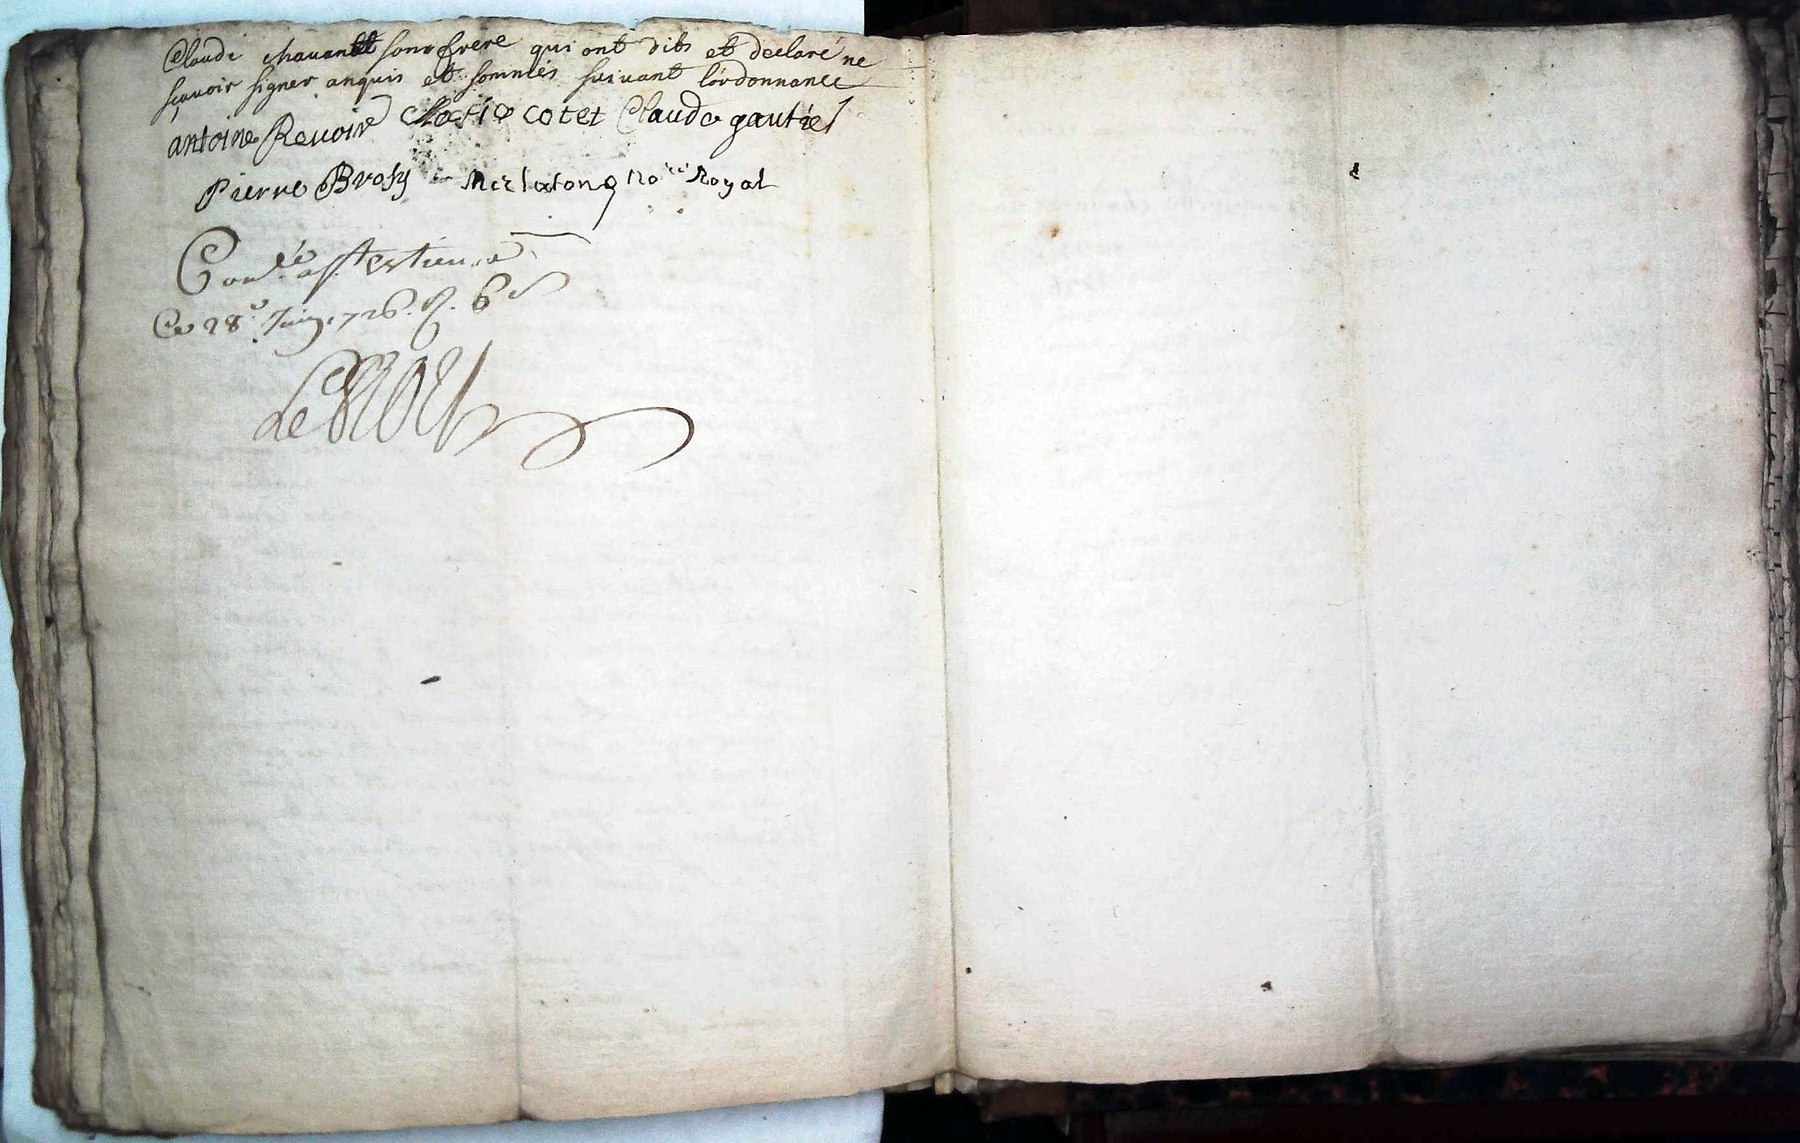 Claude chavanet son frere qui ont dits et declaré ne
sçavoir signer anquis et sommés suivant l'ordonnance
antoine Revoir cotet Claude gautier
Pierre Brosy No.re Royal
Con.lé a St estienne
Ce 28.e Juin 1726. R. 6 s